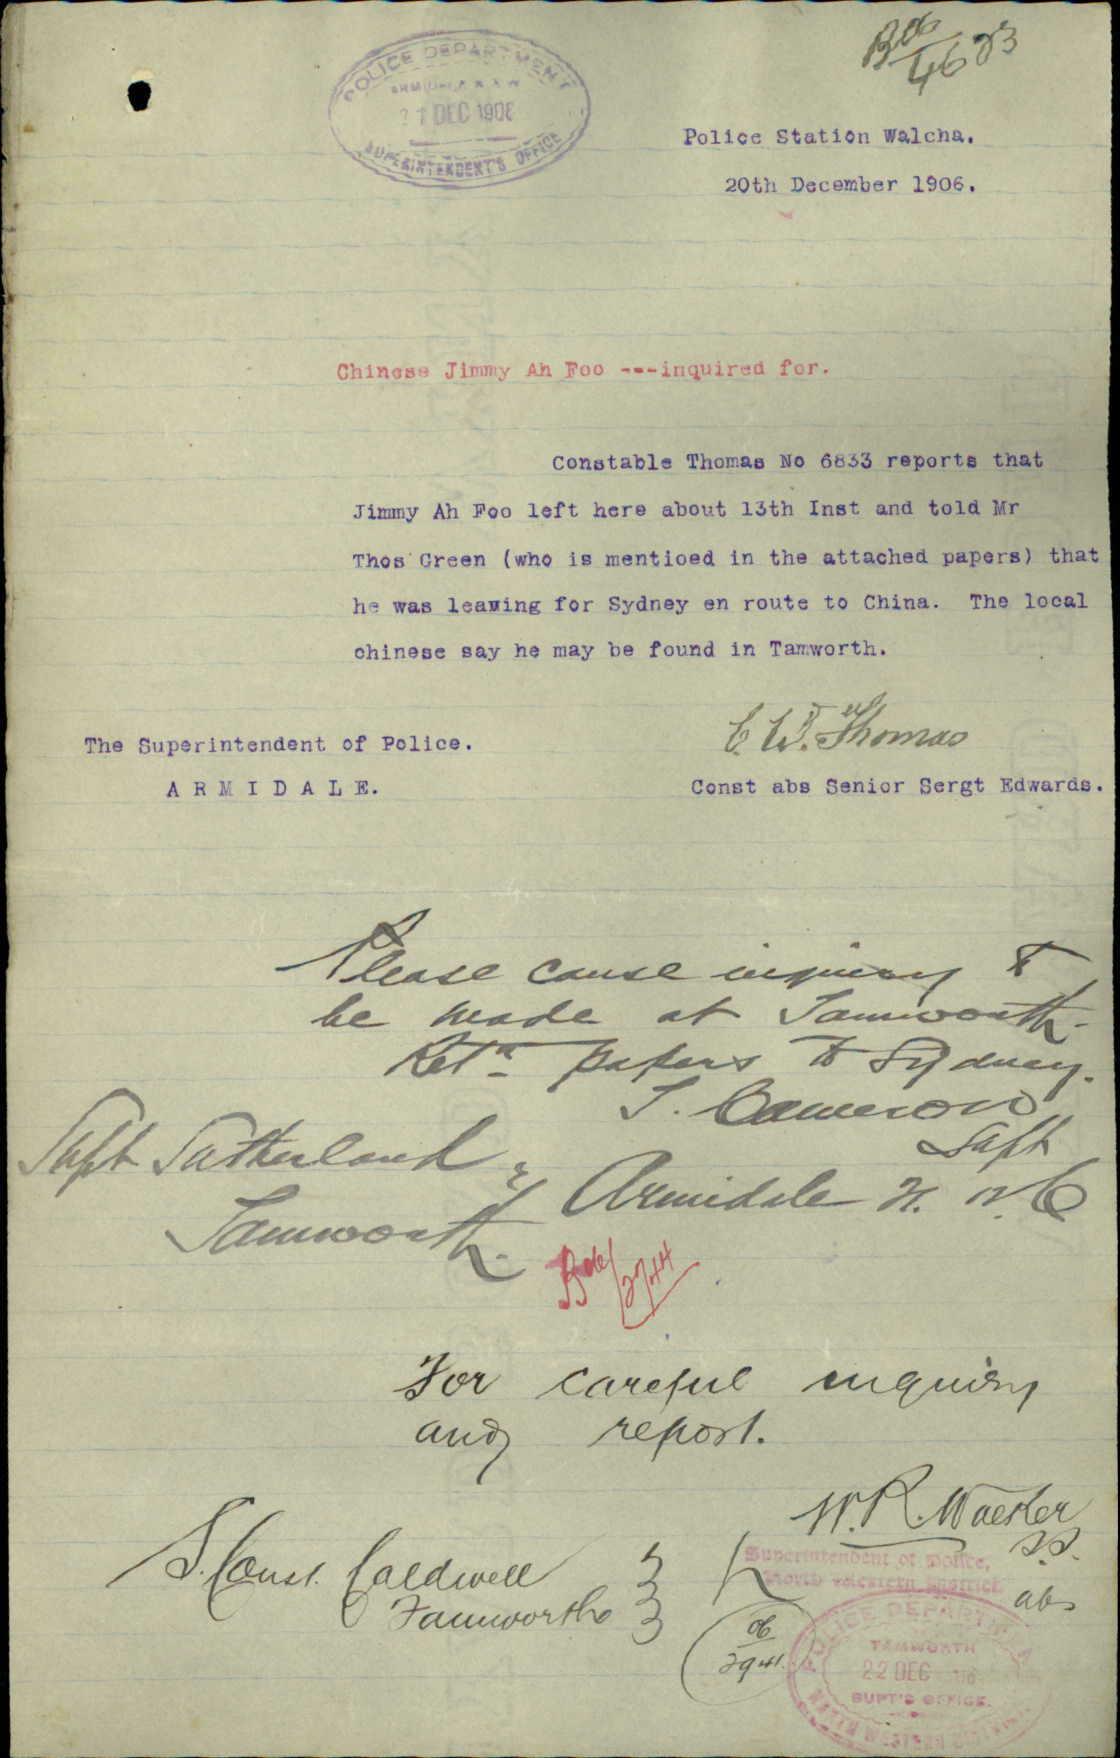 B06/4683
POLICE DEPARTMENT
ARMIDALE N.S.W
21 DEC 1906
SUPERINTENDENT'S OFFICE
Police Station Walcha.
20th December 1906.
Chinese Jimmy Ah Foo ---inquired for.
Constable Thomas No 6833 reports that
Jimmy Ah Foo left here about 13th Inst and told Mr
Thos Green (who is mentioed in the attached papers) that
he was leaving for Sydney en route to China. The local
chinese say he may be found in Tamworth.
C. W. Thomas
The Superintendent of Police.
A R M I D A L E.
Const abs Senior Sergt Edwards.
Please cause inquiry to
be made at Tamworth.
Retn papers to Sydney.
T. Cameron
Supt
Supt Sutherland
Armidale
Tamworth.
B06/2744
For careful inquiry
and report.
W. R.
S.S.
abs
Superintendent of Police,
North Western District
S. Const. Caldwell
Tamworth
06
2941.
POLICE DEPARTMENT
TAMWORTH
22 DEC 06
SUPT'S OFFICE.
NORTH WESTERN DISTRICT